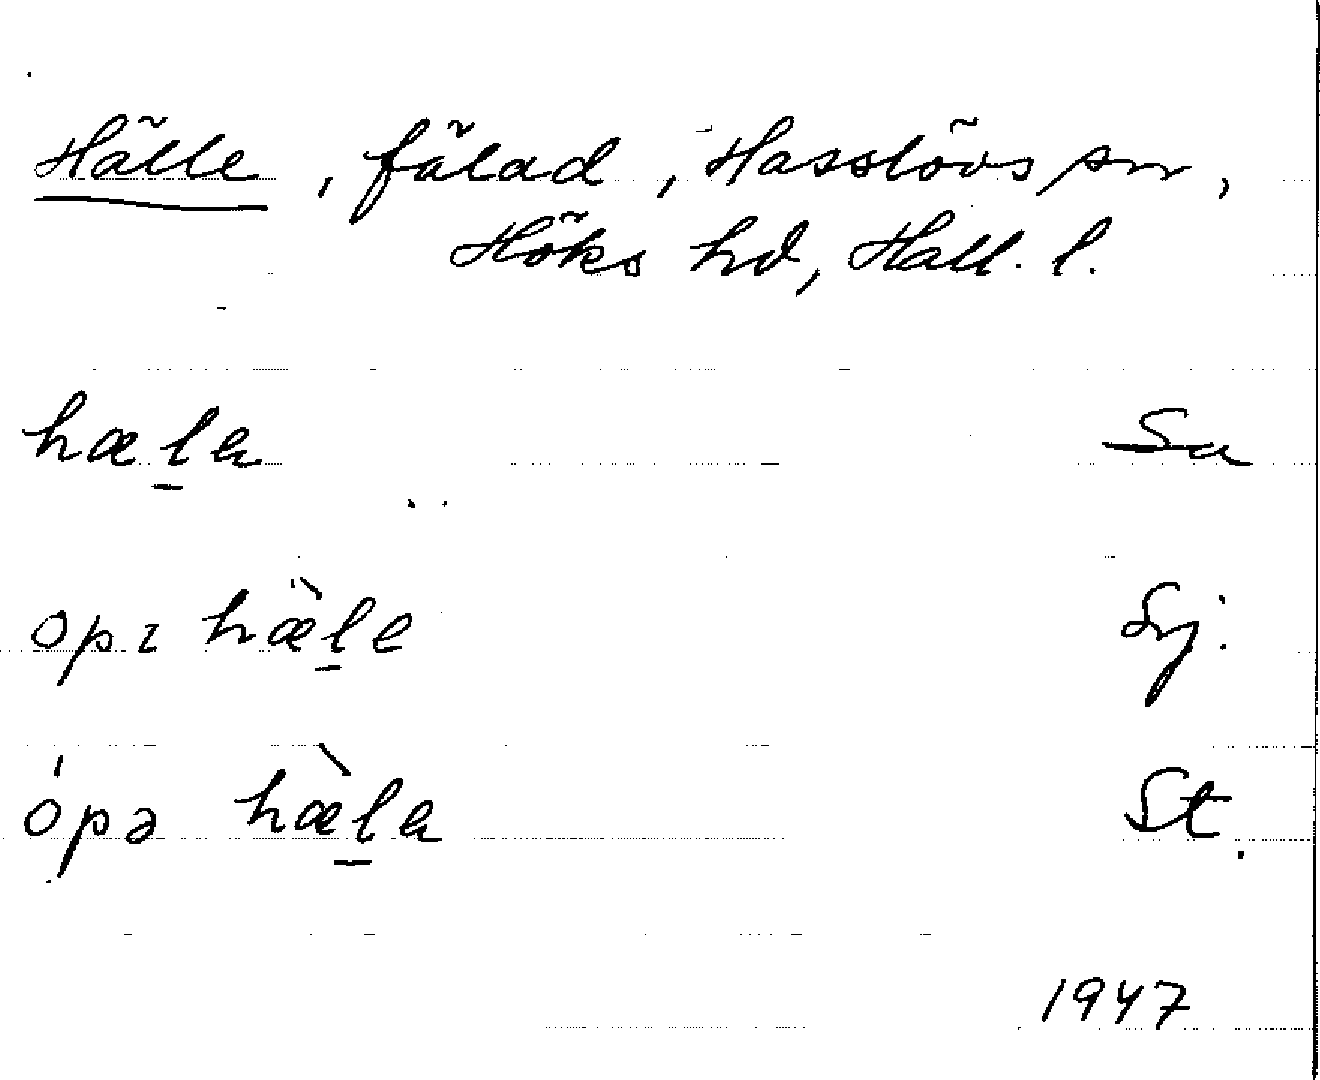 Hälle, fälad, Hasslövs sn,
Höks hd, Hall. l.
hæḻa Sa
opɪ hæ̀ḻe Sj.
ópə hæ̀ḻa St.
1947